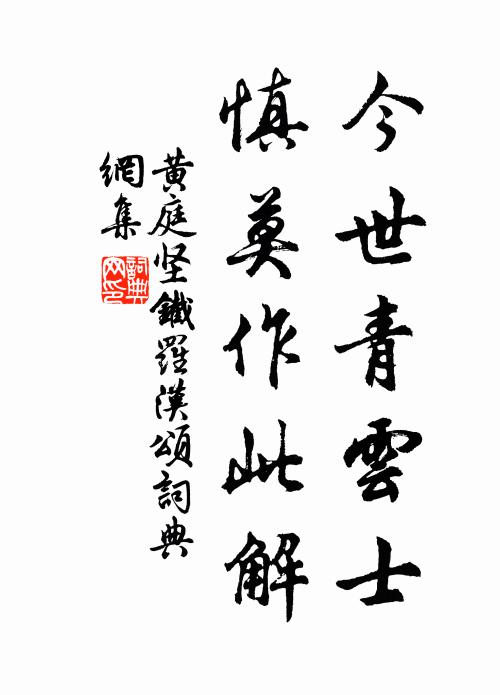 今世青雲士
慎莫作此解
黄庭坚鐵羅漢頌詞典
網集
詞典網印